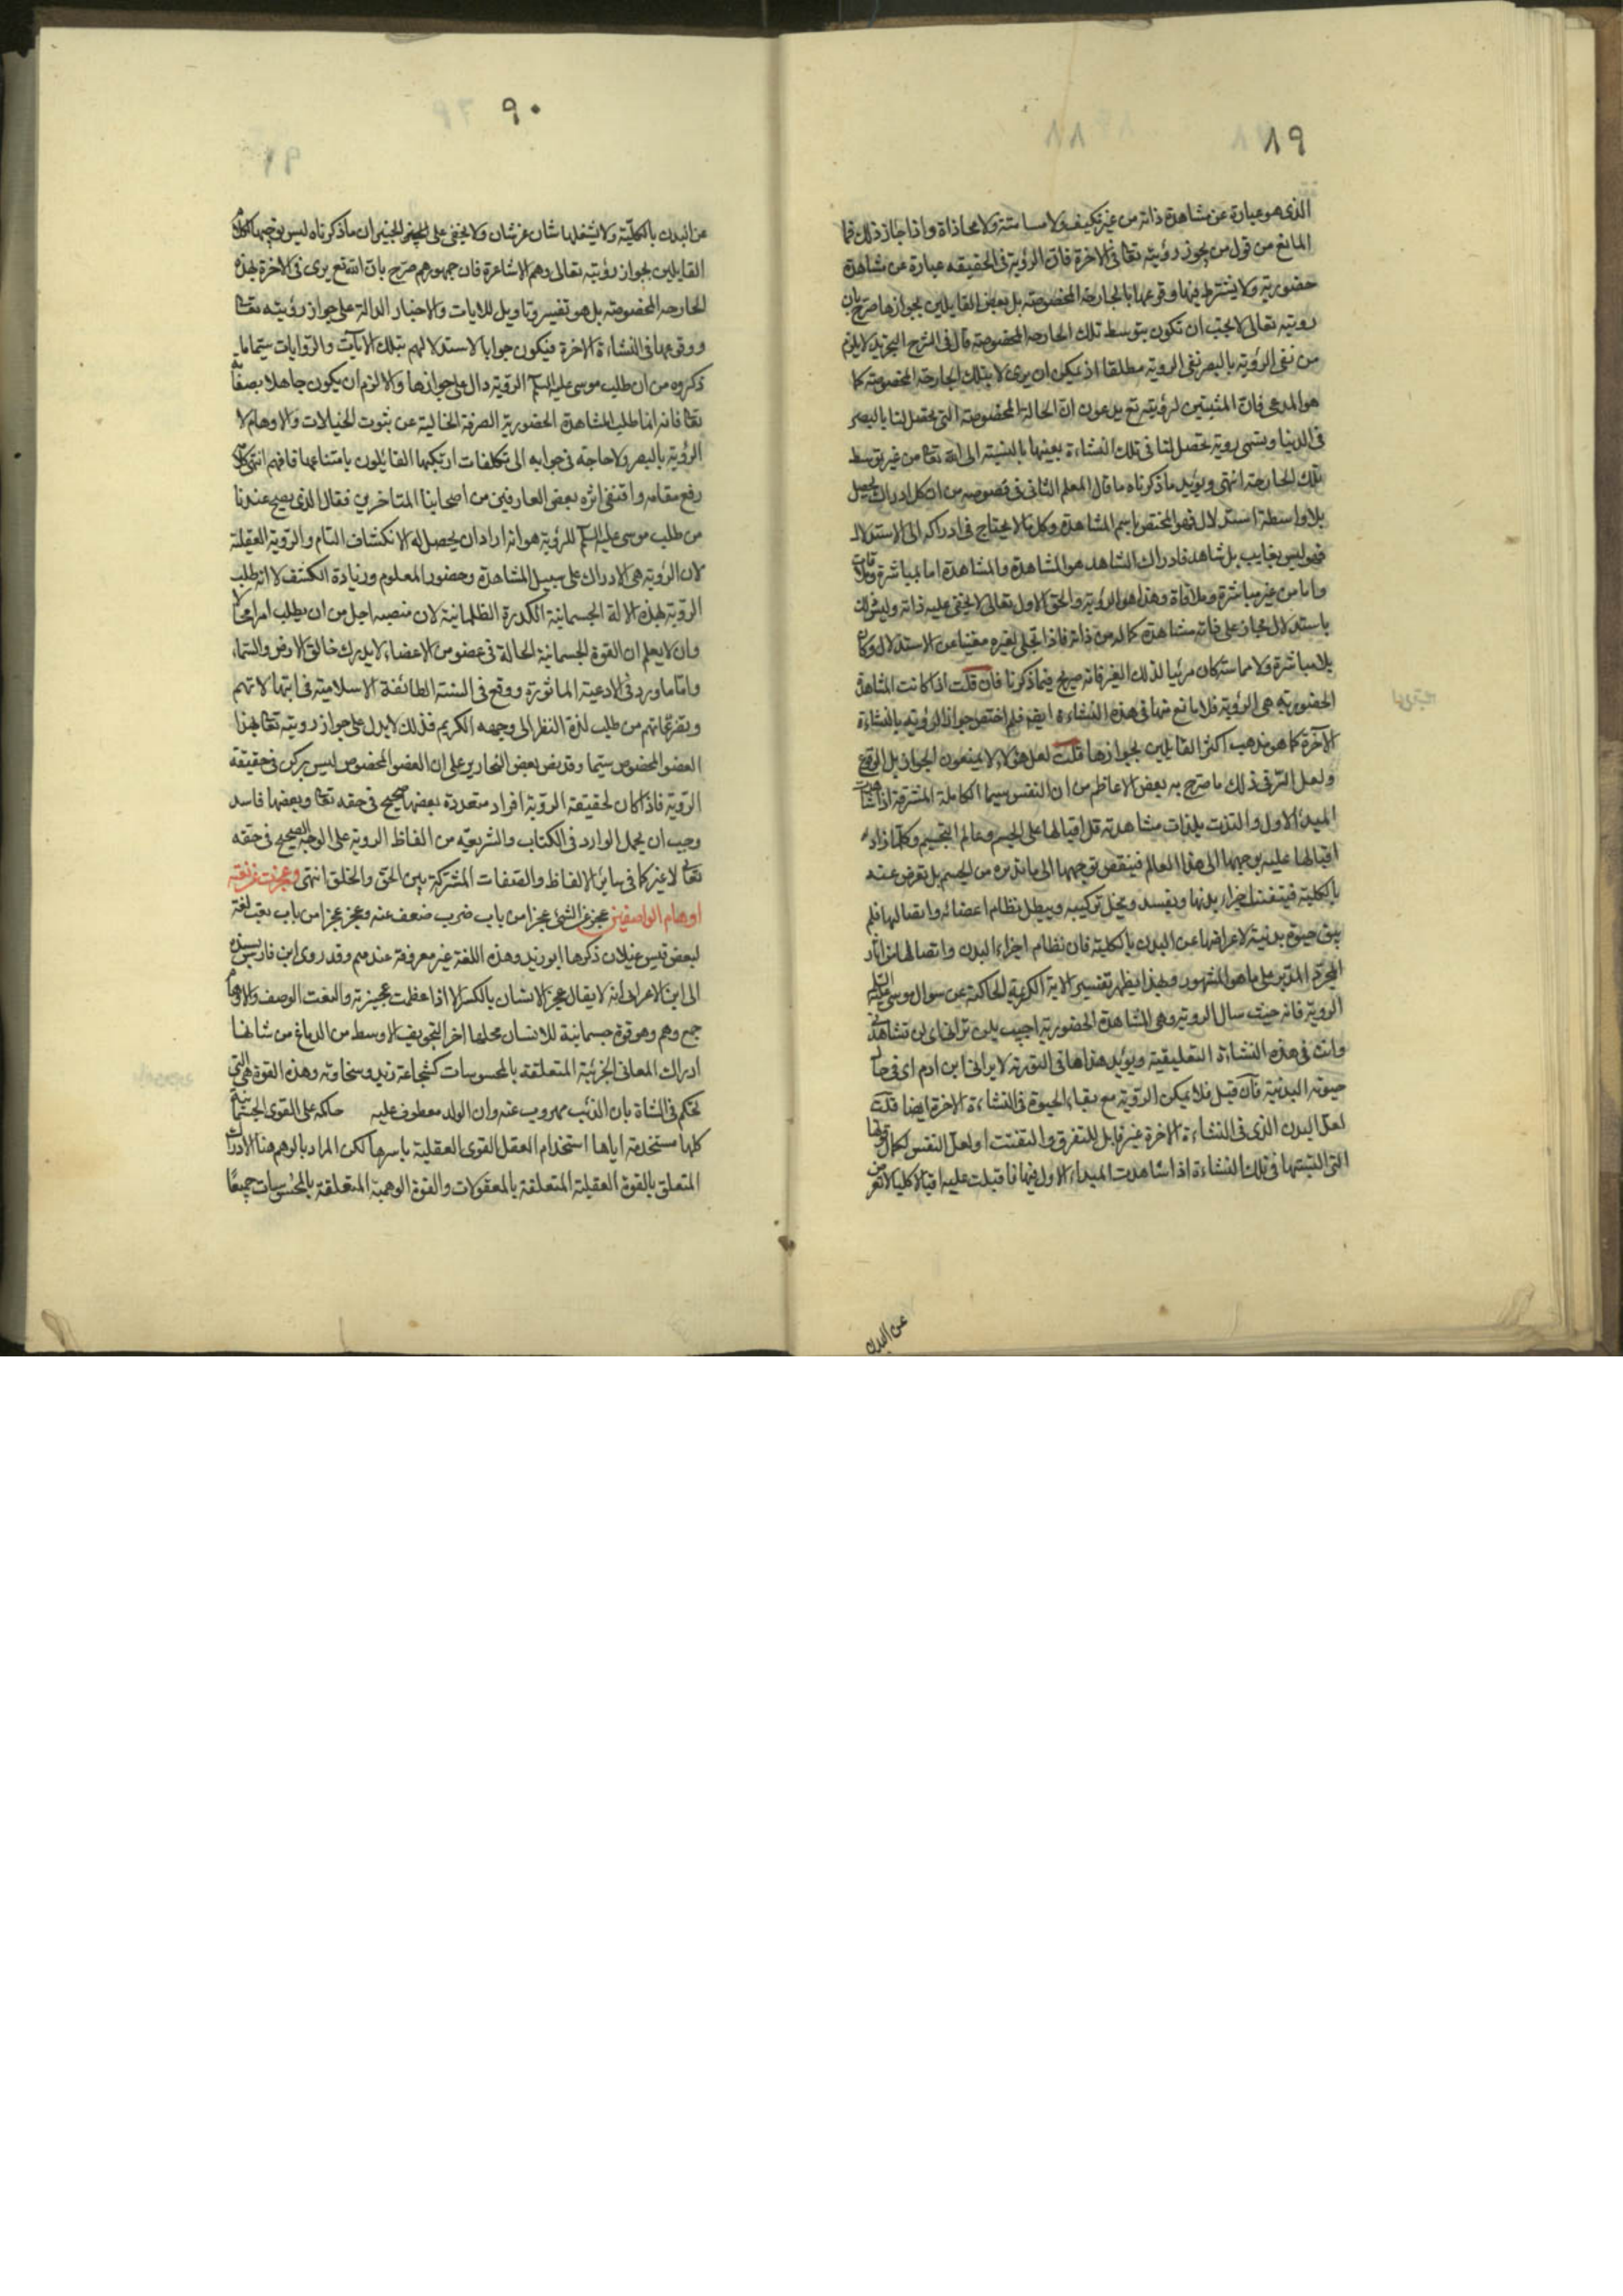 ٨٩
الذى هو عبارة عن مشاهدة ذاته من غير تكيف ولا مسامتة ولا محاذاة واذا جاز ذلك فما
المانع من قول من يجوز رؤيته تعا فى الاخرة فان الرؤية فى الحقيقه عبارة عن مشاهدة
حضورية ولا يشترط فيها وقوعها بالجارحة المخصوصة بل بعض القايلين بجوازها صرح بان
رويته تعالى لا يجب ان تكون بتوسط تلك الجارحة المخصوصة قال فى الشرح التجريد لا يلزم
من نفى الرؤية بالبصر نفى الروية مطلقا اذ يمكن ان يرى لا بتلك الجارحة المخصوصة كما
هو المدعى فان المثبتين لرؤيته تع يدعون ان الحالة المخصوصة التى تحصل لنا بالبصر
فى الدنيا ويسمى روية تحصل لنا فى تلك النشاءة بعينها بالنسبة الى الله تعا من غير توسط
تلك الجارحة انتهى ويؤيد ما ذكرناه ما قال المعلم الثانى فى فصوصه من ان كل ادراك يحصل
بلا واسطة استدلال فهو المختص باسم المشاهدة وكل ما لا يحتاج فى ادراكه الى الاستدلال
فهو ليس بغايب بل شاهد فادراك الشاهد هو المشاهدة والمشاهدة اما بمباشرة وملاقات
واما من غير مباشرة وملاقاة وهذا هو الرؤية والحق الاول تعالى لا يخفى عليه ذاته وليس ذلك
باستدلال فجاز على ذاته مشاهدة كماله من ذاته فاذا تجلى لغيره مغنيا عن الاستدلال وكان
بلا مباشرة ولا مماسة كان مرئيا لذلك الغير فانه صريح فيما ذكرنا فان قلت اذا كانت المشاهدة
الحضورية هى الرؤية فلا مانع منها فى هذه النشاءة ايض فلم اختص جواز الرؤيه بالنشاءة
الآخرة كما هو مذهب اكثر القايلين بجوازها قلت لعل هؤلاء لا يمنعون الجواز بل الوقوع
ولعل السر فى ذلك ما صرح به بعض الاعاظم من ان النفس سيما الكاملة المشرقة اذا شاهدت
المبدء الاول والتذت بلذات مشاهدته قل اقبالها على الجسم وعالم التجسيم وكلما زاد
اقبالها عليه بوجهها الى هذا العالم فينقص توجهها الى ما تدبره من الجسم بل تعرض عنه
بالكلية فيتفتت اجزاء بدنها ويفسد ويختل تركيبه ويبطل نظام اعضائه واتصالها فلم
يبق حيوة بدنية لاعراضها عن البدن بالكلية فان نظام اجزاء البدن واتصالها من اثار
المجرد المدبر على ما هو المشهور وبهذا يظهر تفسير الاية الكريمة الحاكمة عن سوال موسى عليه السلم
الروية فانه حيث سال الروية وهى المشاهدة الحضورية اجيب بلن ترانى اى لن تشاهدنى
وانت فى هذه النشاءة التعليقية ويؤيد هذا ما فى التورية لا يرانى ابن ادم اى فى حال
حيوته البدنية فان قيل فلا يمكن الروية مع بقاء الحيوة فى النشاءة الاخرة ايضا قلت
لعل البدن الذى فى النشاءة الاخرة غير قابل للتفرق والتفتت او لعل النفس لكمال قوتها
التى اكتسبتها فى تلك النشاءة اذا شاهدت المبداء الاول فيها فاقبلت عليه اقبالا كليا لا تعرض
عن البدن
٩٠
عن البدن بالكلية ولا يشغلها شان عن شان ولا يخفى على الخبير ان ما ذكرناه ليس توجيها لكلام
القايلين بجواز رؤيته تعالى وهم الاشاعرة فان جمهورهم صرح بان الله تع يرى فى الاخرة بهذه
الجارحه المخصوصة بل هو تفسير وتاويل للايات والاخبار الدالة على جواز رؤيته تعا
ووقوعها فى النشاءة الاخرة فيكون جوابا لاستدلالهم بتلك الايات والروايات سيما ما
ذكروه من ان طلب موسى عليه السلم الروية دال على جوازها والا لزم ان يكون جاهلا بصفاته
تعا فانه انما طلب المشاهدة الحضورية الصرفة الخالية عن ثبوت الخيالات والاوهام لا
الرؤية بالبصر ولا حاجة فى جوابه الى تكلفات ارتكبها القائلون بامتناعها فافهم انتهى
رفع مقامه واقتفى اثره بعض العارفين من اصحابنا المتاخرين فقال الذى يصح عندنا
من طلب موسى عليه السلم للرؤية هو انه اراد ان يحصل له الانكشاف التام والروية العقلية
لان الرؤية هى الادراك على سبيل المشاهدة وحضور المعلوم وزيادة الكشف لا انه طلب
الروية بهذه الالة الجسمانية الكدرة الظلمانية لان منصبه اجل من ان يطلب امرا محالا
وان لا يعلم ان القوة الجسمانية الحالة فى عضو من الاعضاء لا يدرك خالق الارض والسماء
واما ما ورد فى الادعية الماثورة ووقع فى السنة الطائفة الاسلامية فى ابتهالاتهم
وتضرعاتهم من طلب لذة النظر الى وجهه الكريم فذلك لا يدل على جواز رويته تعا بهذا
العضو المخصوص سيما وقد نص بعض النحارير على ان العضو المخصوص ليس بركن فى حقيقة
الروية فاذا كان لحقيقة الروية افراد متعددة بعضها صحيح فى حقه تعا وبعضها فاسد
وجب ان يحمل الوارد فى الكتاب والشريعه من الفاظ الروية على الوجه الصحيح فى حقه
تعا لا غير كما فى سائر الالفاظ والصفات المشتركة بين الحق والخلق انتهى وعجزت عن نعته
اوهام الواصفين عجز عن الشئ عجزا من باب ضرب ضعف عنه وعجز عجزا من باب تعب لغة
لبعض قيس عيلان ذكرها ابو زيد وهذه اللغة غير معروفة عندهم وقد روى ابن فارس بسنده
الى ابن الاعرابى انه لا يقال عجز الانسان بالكسر الا اذا عظمت عجيزته والنعت الوصف والاوهام
جمع وهم وهو قوة جسمانية للانسان محلها اخر التجويف الاوسط من الدماغ من شانها
ادراك المعانى الجزئية المتعلقة بالمحسوسات كشجاعة زيد وسخاوته وهذه القوة هى التى
تحكم فى الشاة بان الذئب مهروب عنه وان الولد معطوف عليه حاكمة على القوى الجسمانية
كلها مستخدمة اياها استخدام العقل القوى العقلية باسرها لكن المراد بالوهم هنا الادراك
المتعلق بالقوة العقلية المتعلقة بالمعقولات والقوة الوهمية المتعلقة بالمحسوسات جميعا